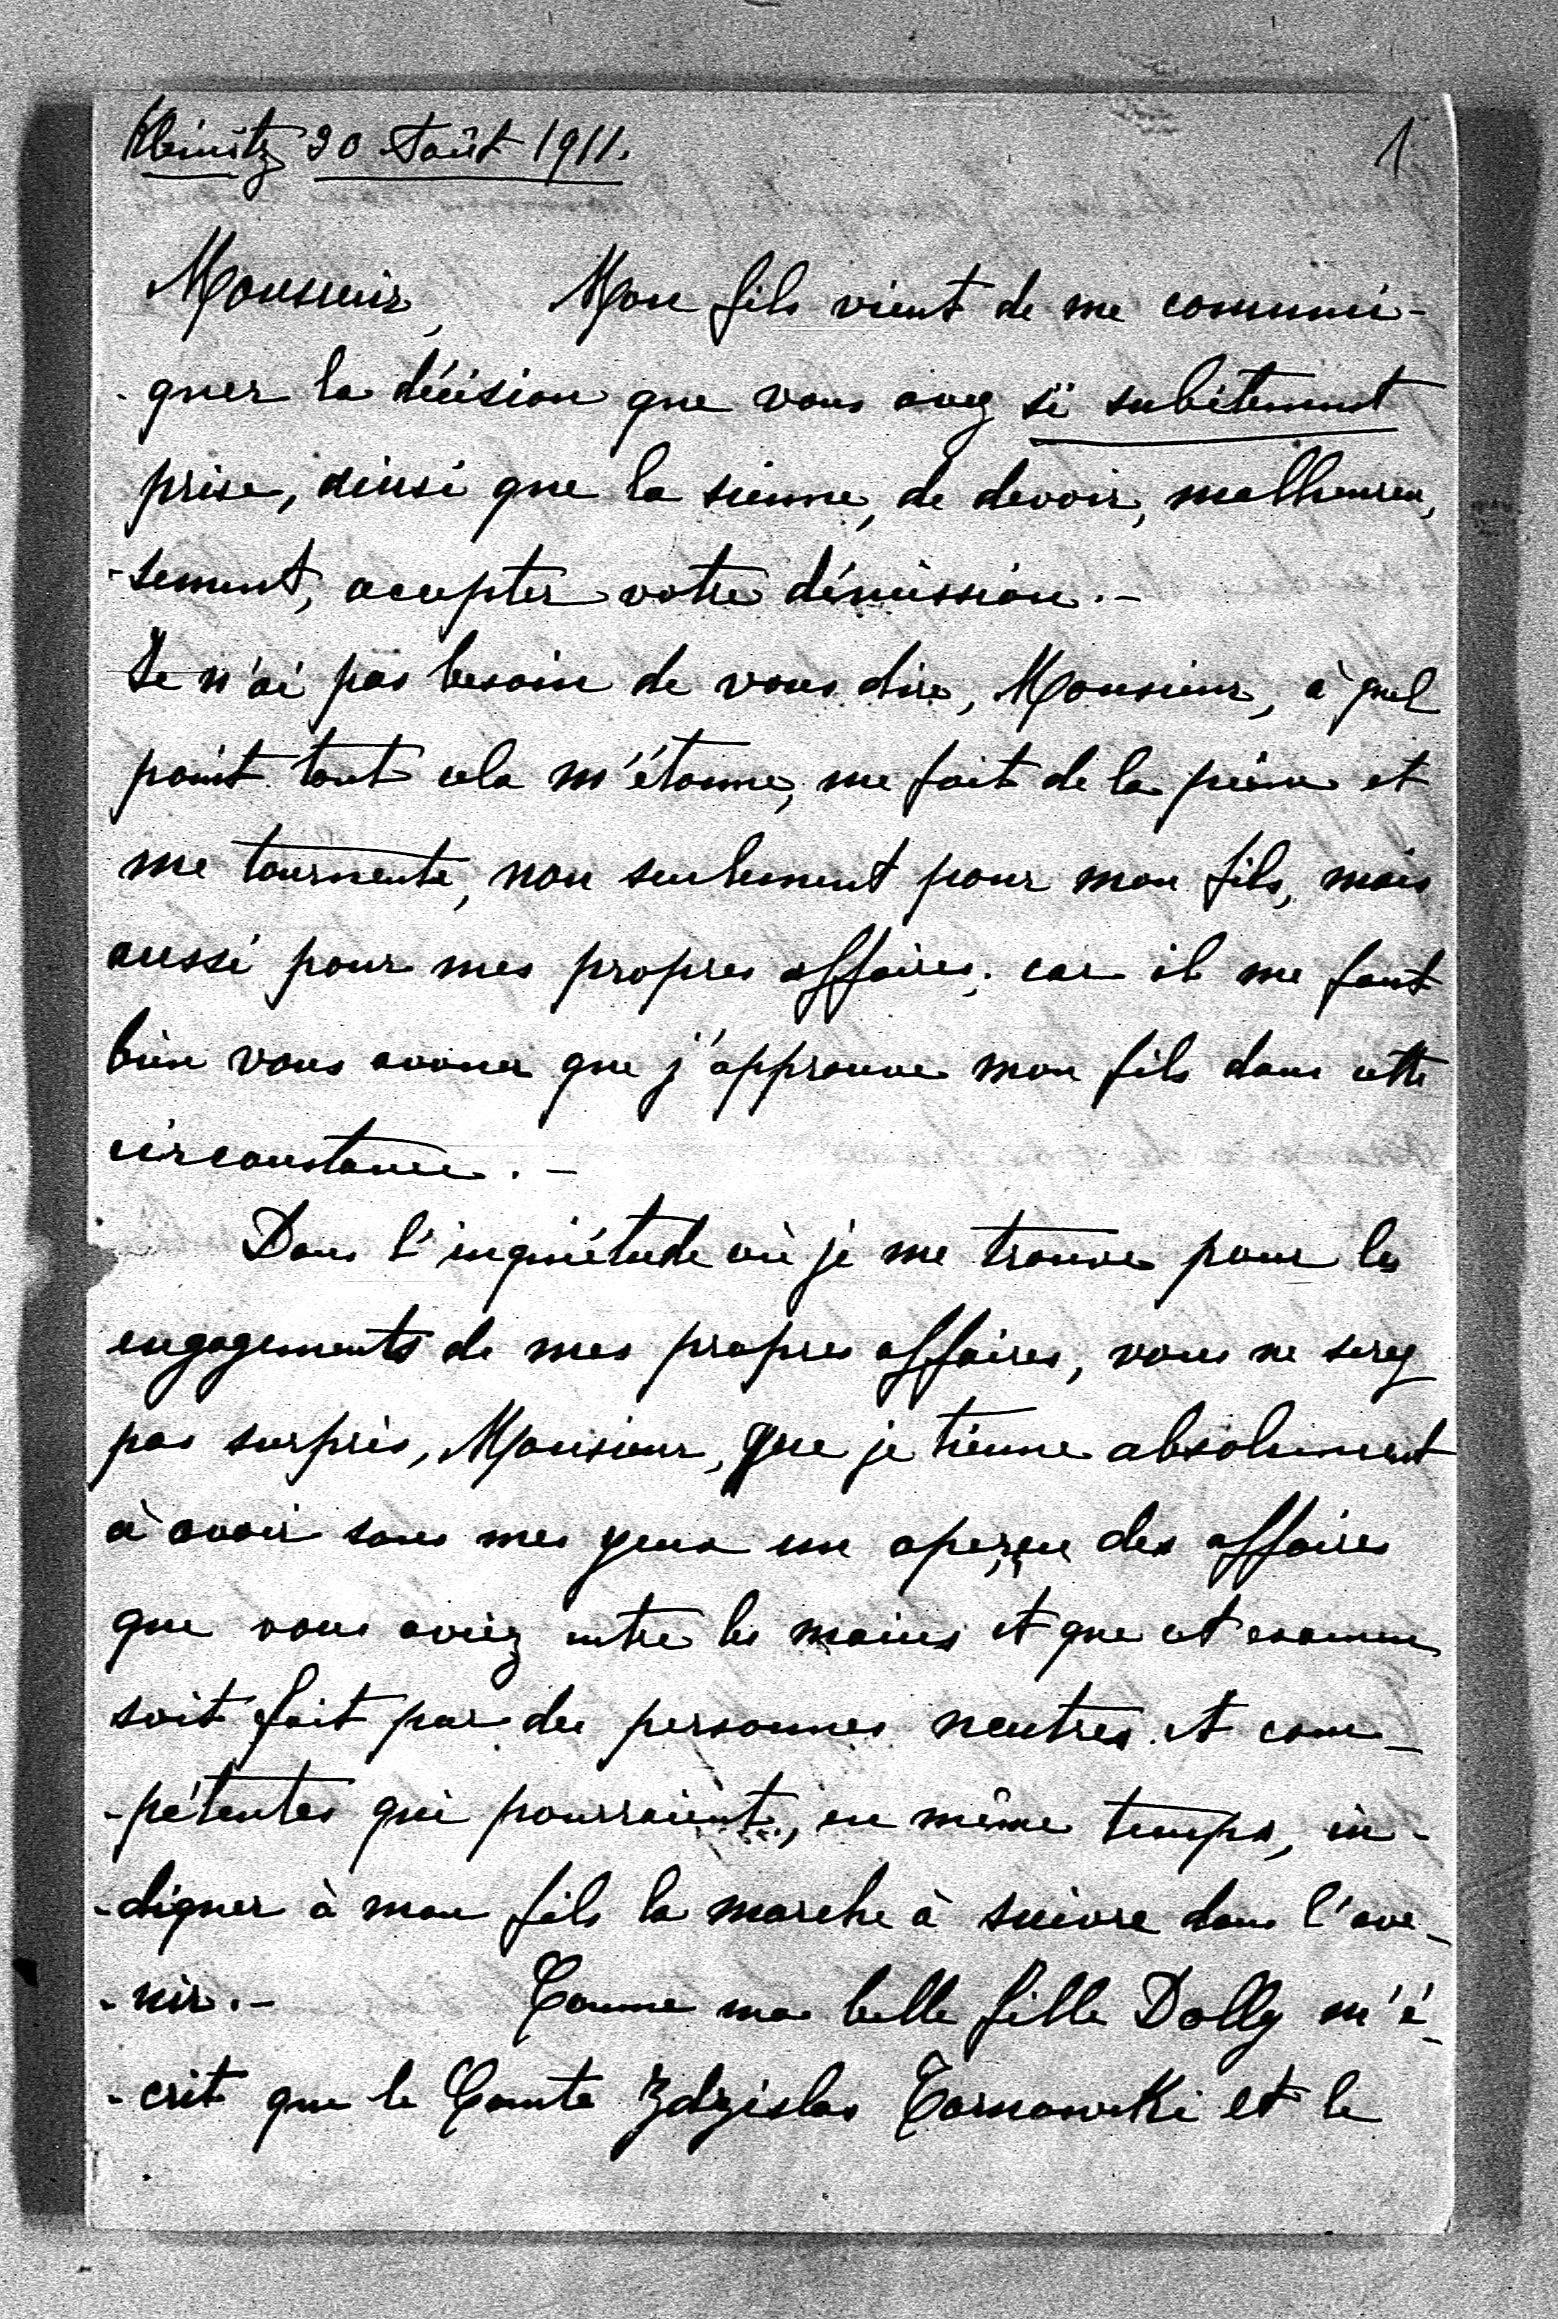 Kleinitz 30 Août 1911.
1
Monsieur, Mon fils vient de me communi-
-quer la décision que vous avez si subitement
prise, ainsi que la sienne, de devoir, malheureu,
-sement, accepter votre démission.-
Je n'ai pas besoin de vous dire, Monsieur, à quel
point tout cela m'étonne, me fait de la peine et
me tourmente, non seulement pour mon fils, mais
aussi pour mes propres affaires; car il me faut
bien vous avouer que j'approuve mon fils dans cette
circonstance.-
Dans l'inquiétude où je me trouve pour les
engagements de mes propres affaires, vous ne serez
pas surpris, Monsieur, que je tienne absolument
à avoir sous mes yeux un aperçu des affaires
que vous aviez entre les mains et que cet examen
soit fait par des personnes neutres et com-
-pétentes qui pourraient, en même temps, in-
-diquer à mon fils la marche à suivre dans l'ave-
-nir.- Comme ma belle fille Dolly m'é-
-crit que le Comte Zdzislas Tarnowski et le